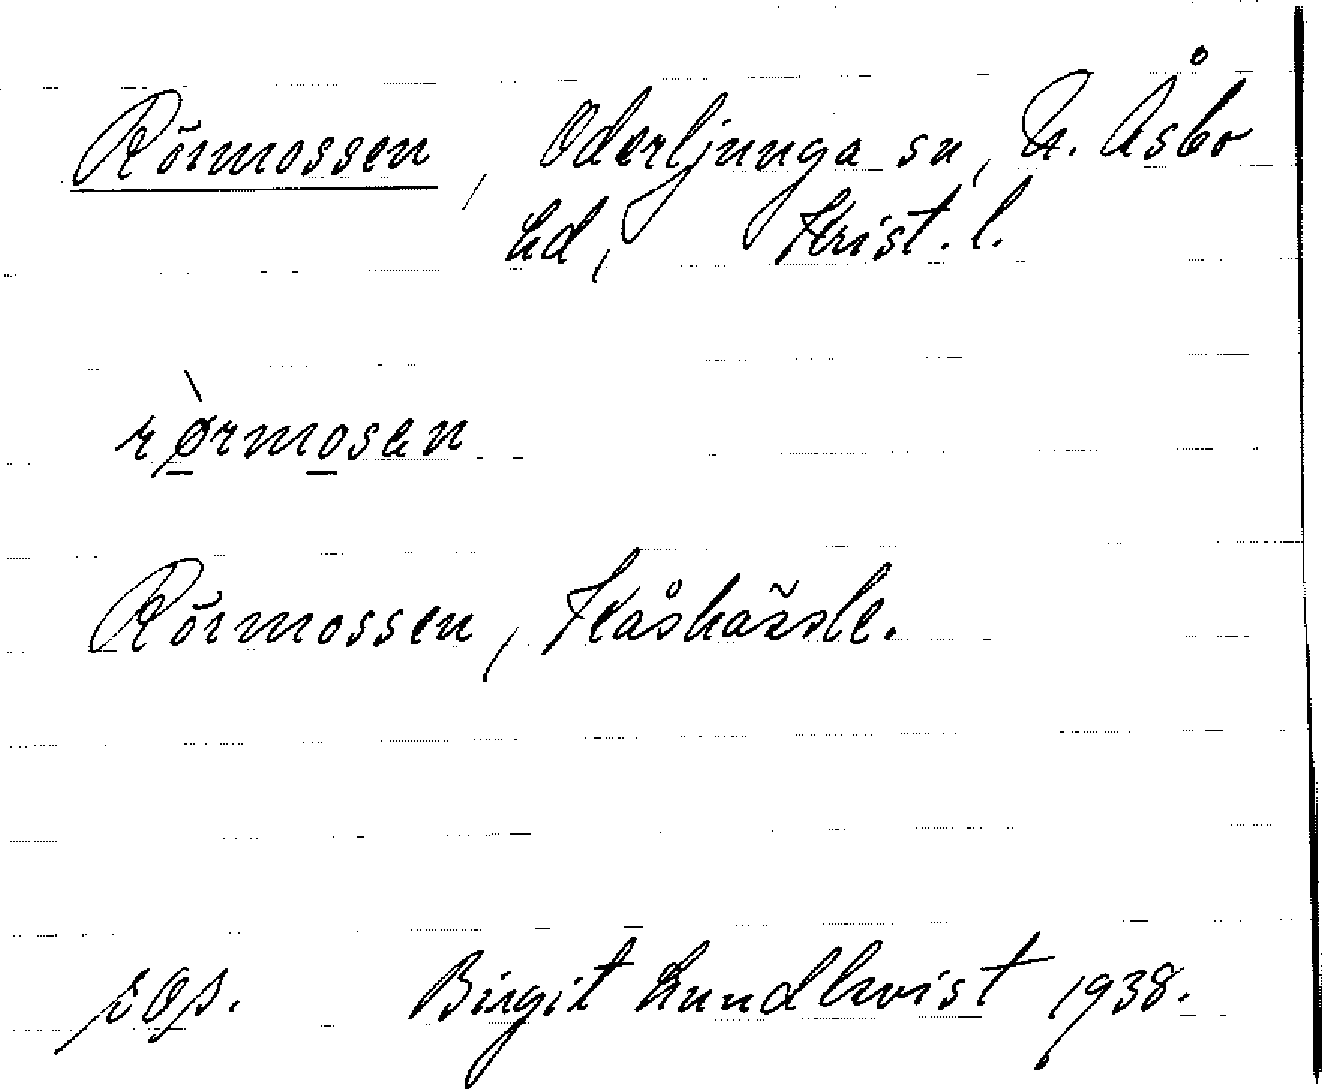 Rörmossen, Oderljunga sn, N. Åsbo
hd, Krist. l.
rørmosen
Rörmossen, Skåshässle.
Birgit Lundkvist 1938.